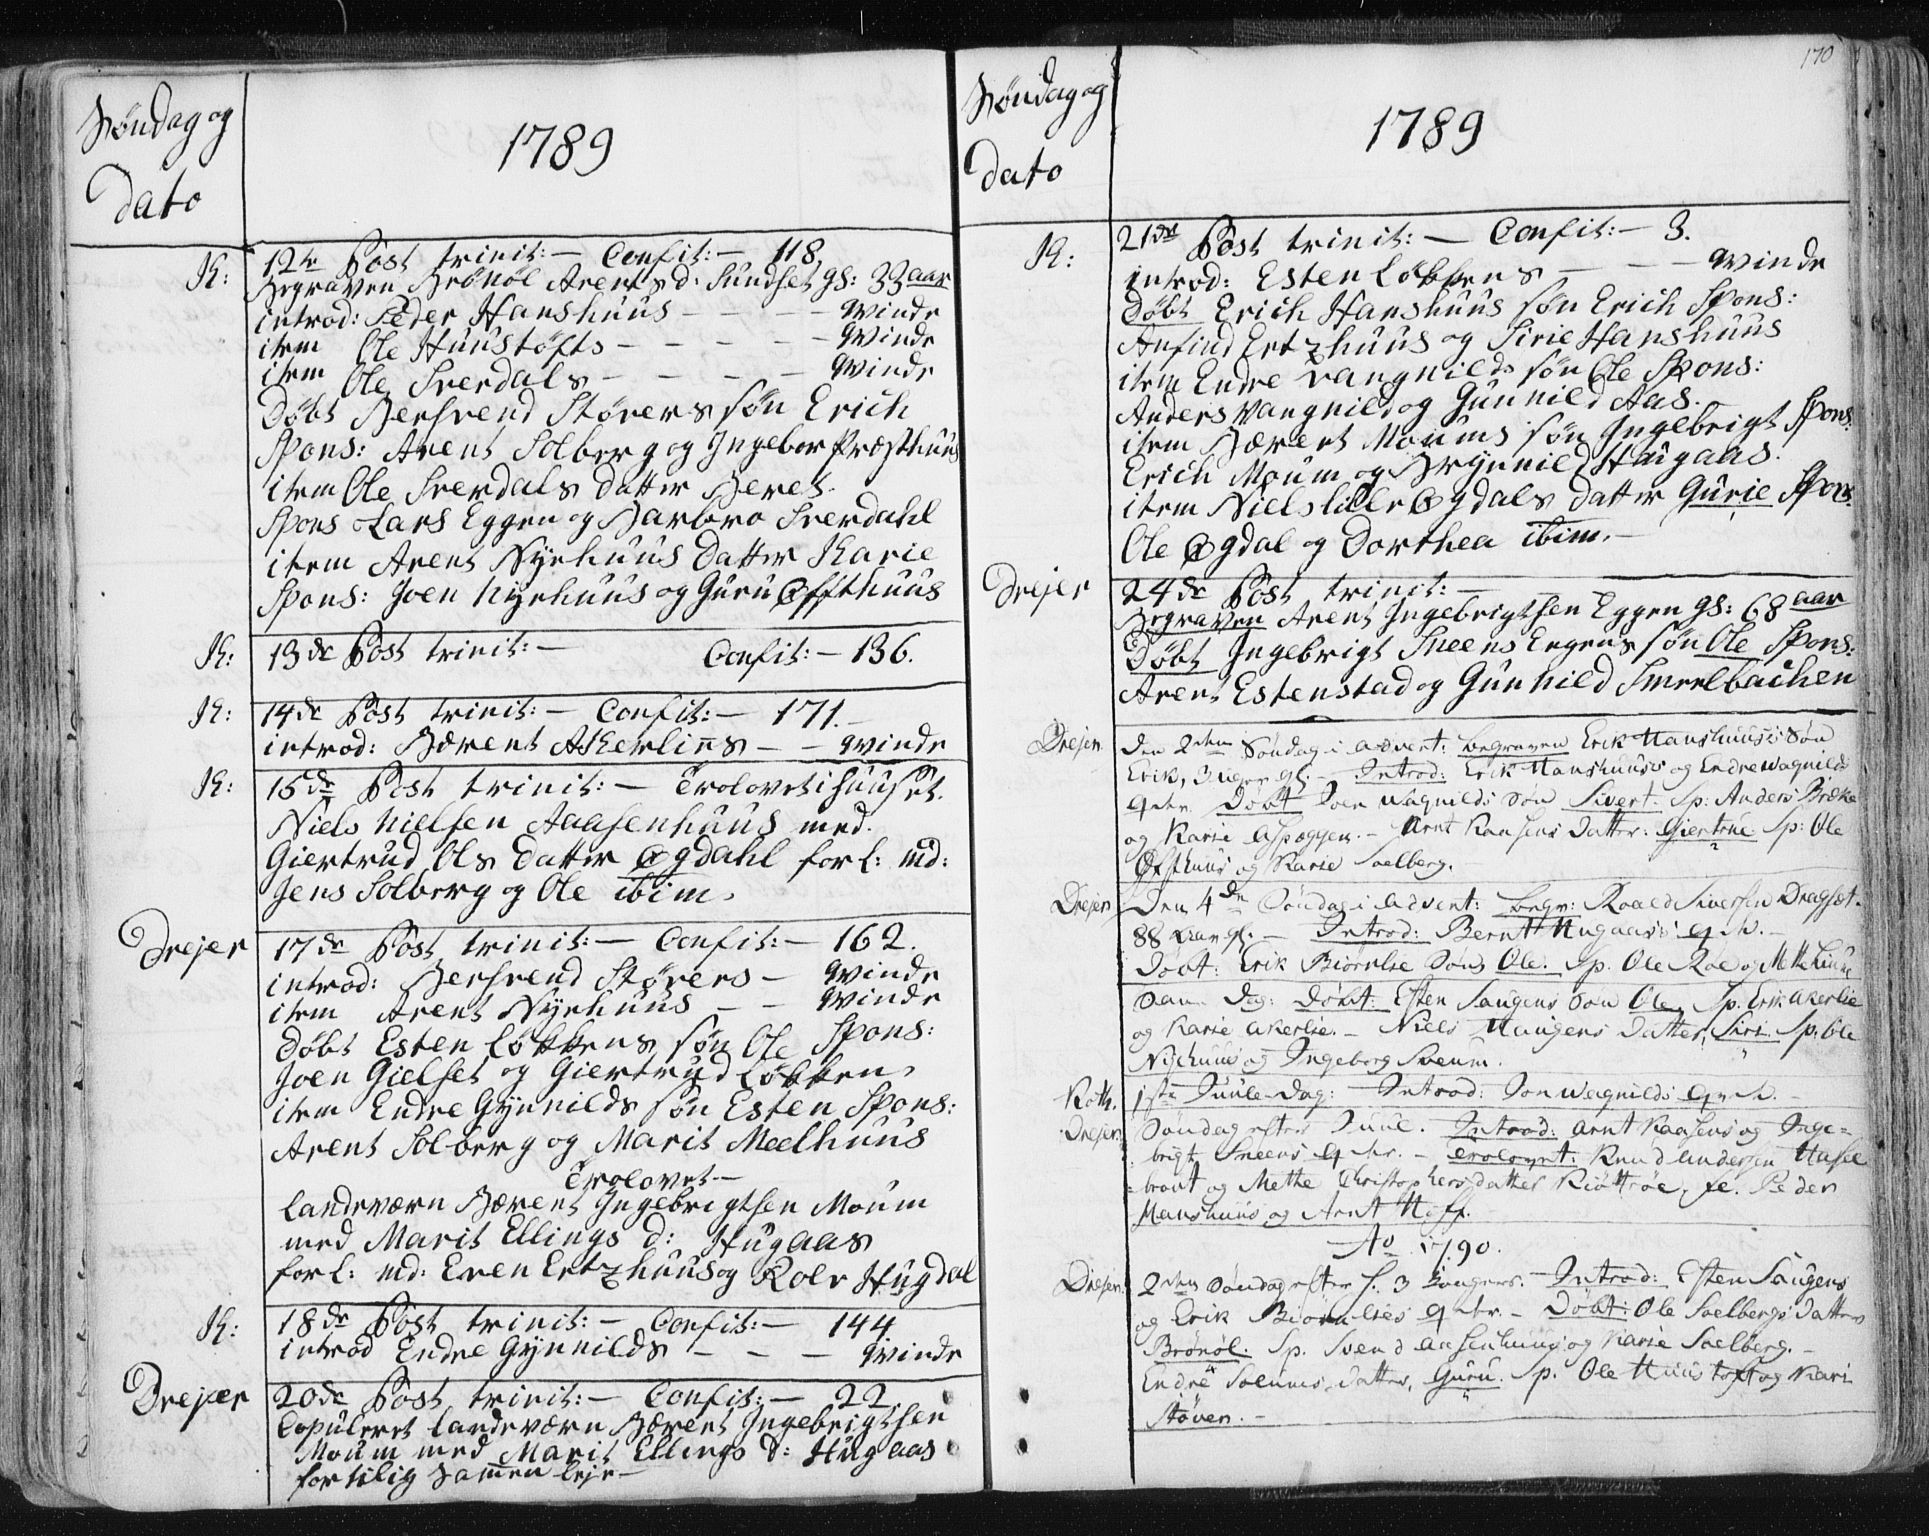 Søndag og
Dato
1789
K: 12te Post trinit: — Confit: — 118.
Begraven Brønøl Arents d: Sundset gl: 33 aar
introd: Peder Hanshuus — — — — qvinde
item Ole Huustøfts — — — — — qvinde
item Ole Sverdals — — — — qvinde
Døbt Bersvend Størers søn Erich
Spons: Arent Solberg og Ingebor Præsthuus
item Ole Sverdals datter Beret.
Spons Lars Eggen og Barbro Sverdahl
item Arent Nyehuus Datter Karie
Spons: Joen Nyehuus og Guru Øffthuus
K: 13de Post trinit: — Confit: — 136.
K: 14de Post trinit: — Confit: — 171. —
introd: Bærent Akerliens — — qvinde
K: 15de Post trinit: — Trolovet i huuset.
Niels Nielsen Aasenhuus med
Giertrud Ols Datter Øgdahl forl: md:
Jens Solberg og Ole ibim.
Drejer 17de Post trinit: — Confit: — 162.
introd: Bersvend Størers — qvinde
item Arent Nyehuus — — qvinde
Døbt Esten Løkkens søn Ole Spons:
Joen Gielset og Giertrud Løkken.
item Endre Gynnilds søn Esten Spons:
Arent Solberg og Marit Meelhuus
Trolovet —
Landeværn Bærent Ingebrigtsen Moum
med Marit Ellings d: Hugaas
forl: md: Even Ertzhuus og Rolv Hugdal
K: 18de Post trinit: — Confit: — 144
introd Endre Gynnilds — — — qvinde
Drejer 20de Post trinit: — Confit: — 22
Copuleret Landeværn Bærent Ingebrigtsen
Moum med Marit Ellings d: Hugaas
fortilig Samen leje —
170
Søndag og
Dato
1789
K: 21de Post trinit: — Confit: — 3.
introd: Esten Løkkens — — — qvinde
Døbt Erich Hanshuus søn Erich Spons:
Anfind Ertzhuus og Sirie Hanshuus
item Endre Vangnilds søn Ole Spons:
Anders Vangnild og Gunnild Aas.
item Bærent Moums søn Ingebrigt Spons.
Erich Moum og Brynnild Haugaas.
item Niels lille Øgdals datter Gurie Spons
Ole Øgdal og Dorthea ibim. —
Drejer 24de Post trinit: —
Begraven Arent Ingebrigtsen Eggen gl: 68 aar
Døbt Ingebrigt Sneens Engens søn Ole Spons:
Arent Estenstad og Gunhild Smeelbachen
Drejer. Den 2den Søndag i Advent: begraven Erik Hanshuus's Søn
Erik, 3 uger gl. — Introd: Erik Hanshuus's og Endre Wagnilds
qvr. Døbt Joen Wagnilds Søn Sivert. Sp: Anders Bræke
og Karie Aspeggen. — Arnt Kaasens Datter: Giertrue Sp: Ole
Øfsthuus og Karie Soelberg.
Drejer Den 4de Søndag i Advent: begr: Roald Siversen Dragset.
88 aar gl. — Introd: Bernt Hugaas's qv. —
Døbt: Erik Biørnlie Søn Ole. Sp. Ole Roe og Mette
Dag: Døbt: Esten Saugens Søn Ole. Sp. Erik Akerlie
og Karie Akerlie. — Niels Haugens Datter, Siri. Sp. Ole
Nyehuus og Ingeborg Svenum.
Roth. 1ste Juule-Dag: Introd: Jon Wagnilds qv. —
Drejer. Søndag efter Juul. Introd: Arnt Kaasens og Inge=
brigt Sneens qvr. — trolovet: Knud Andersen Hase
brout og Mette Christophersdatter Kiøttrøe, fl. Peder
Hanshuus og Arnt Hoff.
Ao 1790.
Drejer. 2den Søndag efter H. 3 Konger. — Introd: Esten Saugens
og Erik Biørnlies qvr. — Døbt: Ole Soelbergs Datter
Brønøl. Sp. Svend Aasenhuus og Karie Soelberg. —
Endre Solums Datter, Guru. Sp. Ole Huustoft og Kari
Støven. —